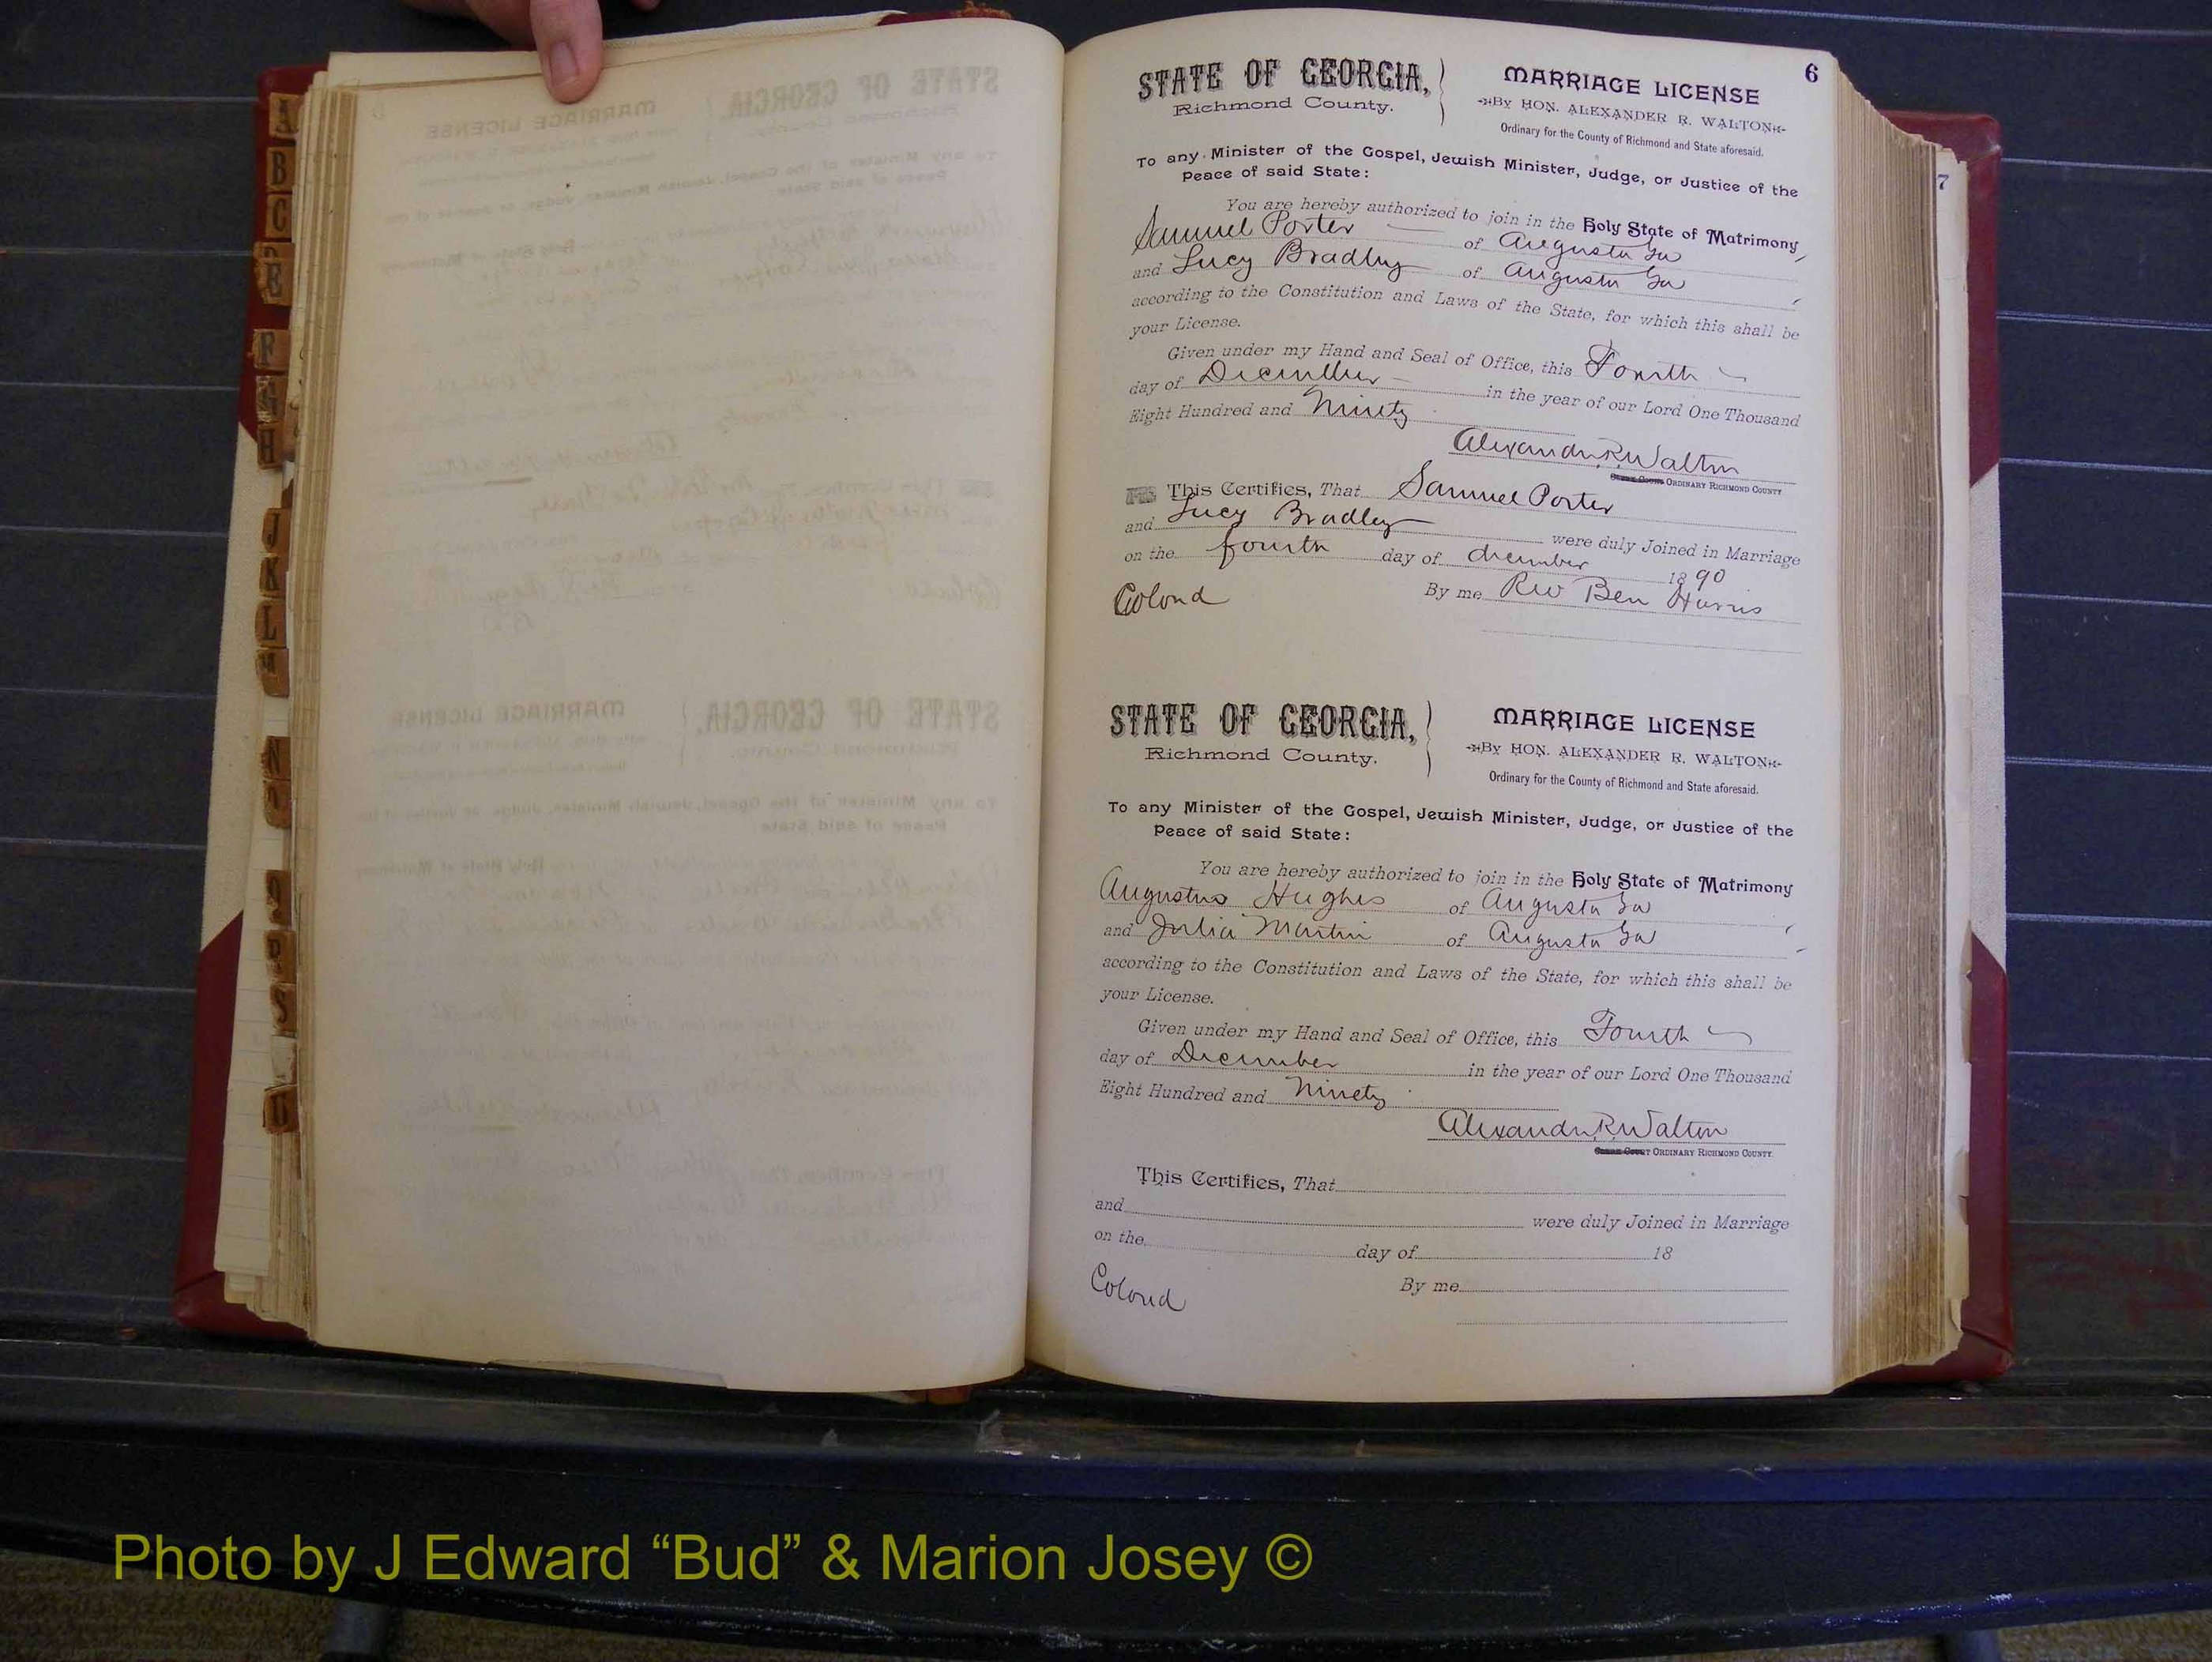 A
B
C
E
F
G
H
J
K
L
M
N
O
P
S
6
7
STATE OF GEORGIA,
Richmond County.
MARRIAGE LICENSE
By HON. ALEXANDER R. WALTON
Ordinary for the County of Richmond and State aforesaid.
To any Minister of the Gospel, Jewish Minister, Judge, or Justice of the
Peace of said State:
You are hereby authorized to join in the Holy State of Matrimony
Samuel Porter of Augusta Ga,
and Lucy Bradley of Augusta Ga,
according to the Constitution and Laws of the State, for which this shall be
your License.
Given under my Hand and Seal of Office, this Fourth
day of December in the year of our Lord One Thousand
Eight Hundred and Ninety
Alexander R. Walton
ORDINARY RICHMOND COUNTY
This Certifies, That Samuel Porter
and Lucy Bradley were duly Joined in Marriage
on the fourth day of december 1890
Colored By me Rev Ben Harris
STATE OF GEORGIA,
Richmond County.
MARRIAGE LICENSE
By HON. ALEXANDER R. WALTON
Ordinary for the County of Richmond and State aforesaid.
To any Minister of the Gospel, Jewish Minister, Judge, or Justice of the
Peace of said State:
You are hereby authorized to join in the Holy State of Matrimony
Augustus Hughes of Augusta Ga,
and Julia Martin of Augusta Ga,
according to the Constitution and Laws of the State, for which this shall be
your License.
Given under my Hand and Seal of Office, this Fourth
day of December in the year of our Lord One Thousand
Eight Hundred and Ninety
Alexander R. Walton
ORDINARY RICHMOND COUNTY.
This Certifies, That
and were duly Joined in Marriage
on the day of 18
Colored By me
Photo by J Edward “Bud” & Marion Josey ©